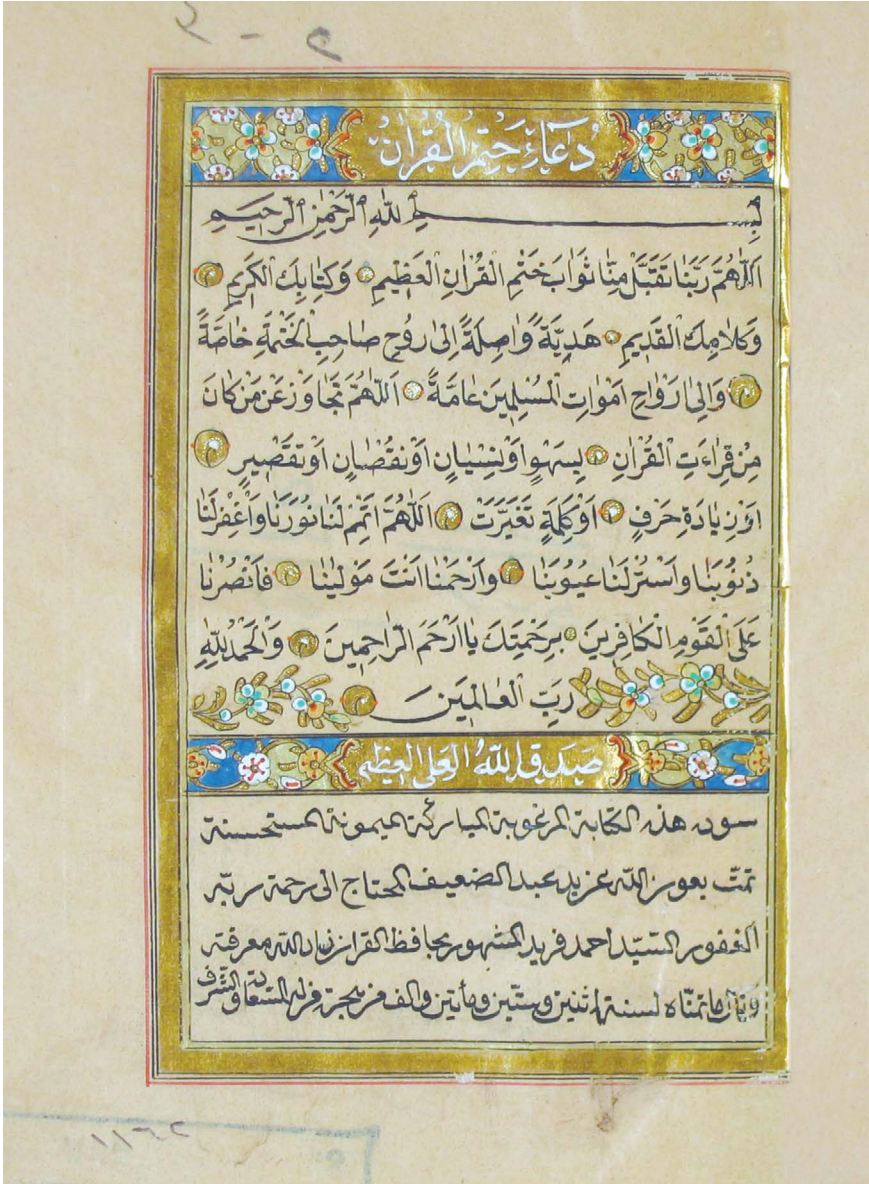 دُعَاءِ خَتْمِ الْقُرْاٰنْ
بِسْمِ اللّٰهِ الرَّحْمٰنِ الرَّحِيمِ
اَللّٰهُمَّ رَبَّنَا تَقَبَّلْ مِنَّا ثَوَابَ خَتْمِ الْقُرْاٰنِ الْعَظِيمِ وَكِتَابِكَ الْكَرِيمِ
وَكَلَامِكَ الْقَدِيمِ هَدِيَّةً وَاصِلَةً اِلٰى رُوحِ صَاحِبِ الْخَتْمَةِ خَاصَّةً
وَاِلٰى اَرْوَاحِ اَمْوَاتِ الْمُسْلِمِينَ عَامَّةً اَللّٰهُمَّ تَجَاوَزْ عَنْ مَنْ كَانَ
مِنْ قِرَاءَتِ الْقُرْاٰنِ بِسَهْوٍ اَوْ نِسْيَانٍ اَوْ نُقْصَانٍ اَوْ تَقْصِيرٍ
اَوْ زِيَادَةِ حَرْفٍ اَوْ كَلِمَةٍ تَغَيَّرَتْ اَللّٰهُمَّ اَتْمِمْ لَنَا نُورَنَا وَاغْفِرْ لَنَا
ذُنُوبَنَا وَاسْتُرْ لَنَا عُيُوبَنَا وَارْحَمْنَا اَنْتَ مَوْلٰينَا فَانْصُرْنَا
عَلَى الْقَوْمِ الْكَافِرِينَ بِرَحْمَتِكَ يَا اَرْحَمَ الرَّاحِمِينَ وَالْحَمْدُ لِلّٰهِ
رَبِّ الْعَالَمِينَ
صَدَقَ اللّٰهُ الْعَلِى الْعَظِيم
هذه الكتابة المرغوبة المباركة الميمونة المستحسنة
تمّت بعون الله عزيد عبد الضعيف المحتاج الى رحمة ربّه
الغفور السّيّد احمد فريد المشهور بحافظ القران زاد الله معرفته
لسنة اثنين وستّين ومأتين والف من هجرة من له السّعادة والشّرف
١١٦٢